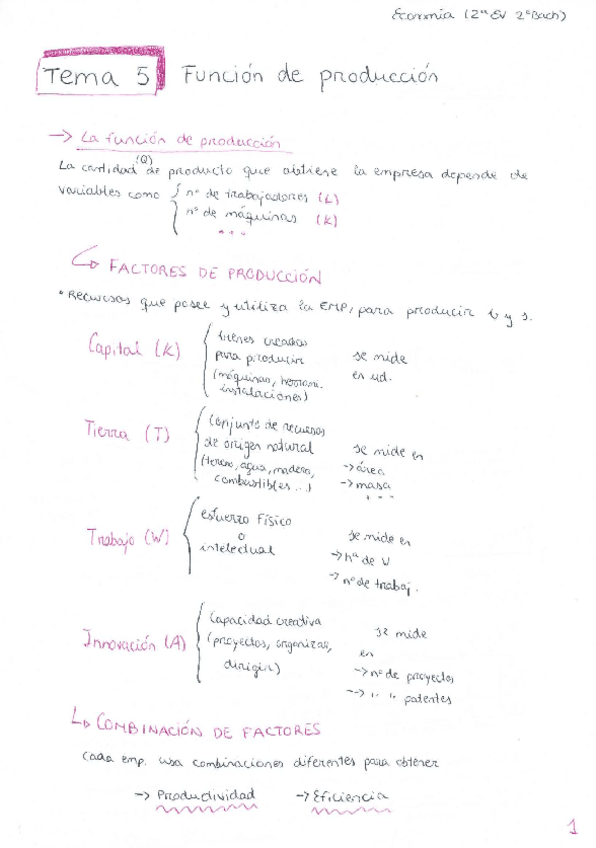 Economía (2ª EV 2ºBach)
Tema 5 Función de producción
→ La función de producción
La cantidad (Q) de producto que obtiene la empresa depende de
variables como { nº de trabajadores (L)
nº de máquinas (K)
...
↳ FACTORES DE PRODUCCIÓN
• Recursos que posee y utiliza la EMP, para producir b y s.
Capital (K) { bienes creados
para producir se mide
(máquinas, herrami. en ud.
instalaciones)
Tierra (T) { conjunto de recursos
de origen natural se mide en
(terreno, agua, madera, → área
combustibles...) → masa
...
Trabajo (W) { esfuerzo físico se mide en
o → hª de W
intelectual → nº de trabaj.
Innovación (A) { capacidad creativa se mide
(proyectos, organizas, en
dirigir) → nº de proyectos
→ " " patentes
↳ COMBINACIÓN DE FACTORES
Cada emp. usa combinaciones diferentes para obtener
→ Productividad → Eficiencia
1